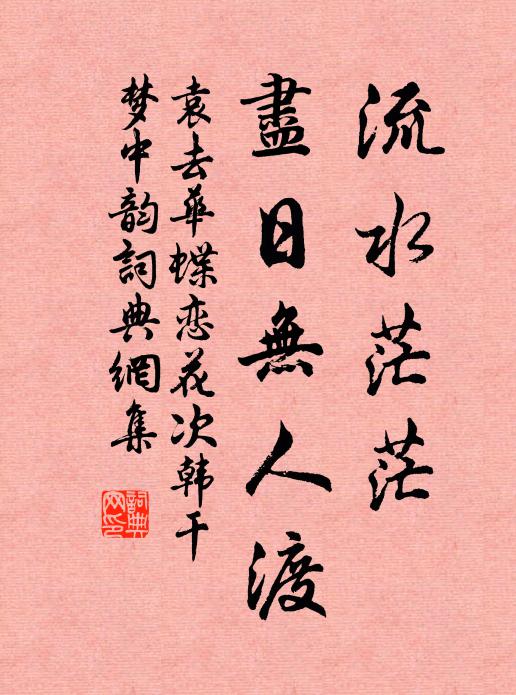 流水茫茫
盡日無人渡
袁去华蝶恋花次韩干
梦中韵詞典網集
詞典网印